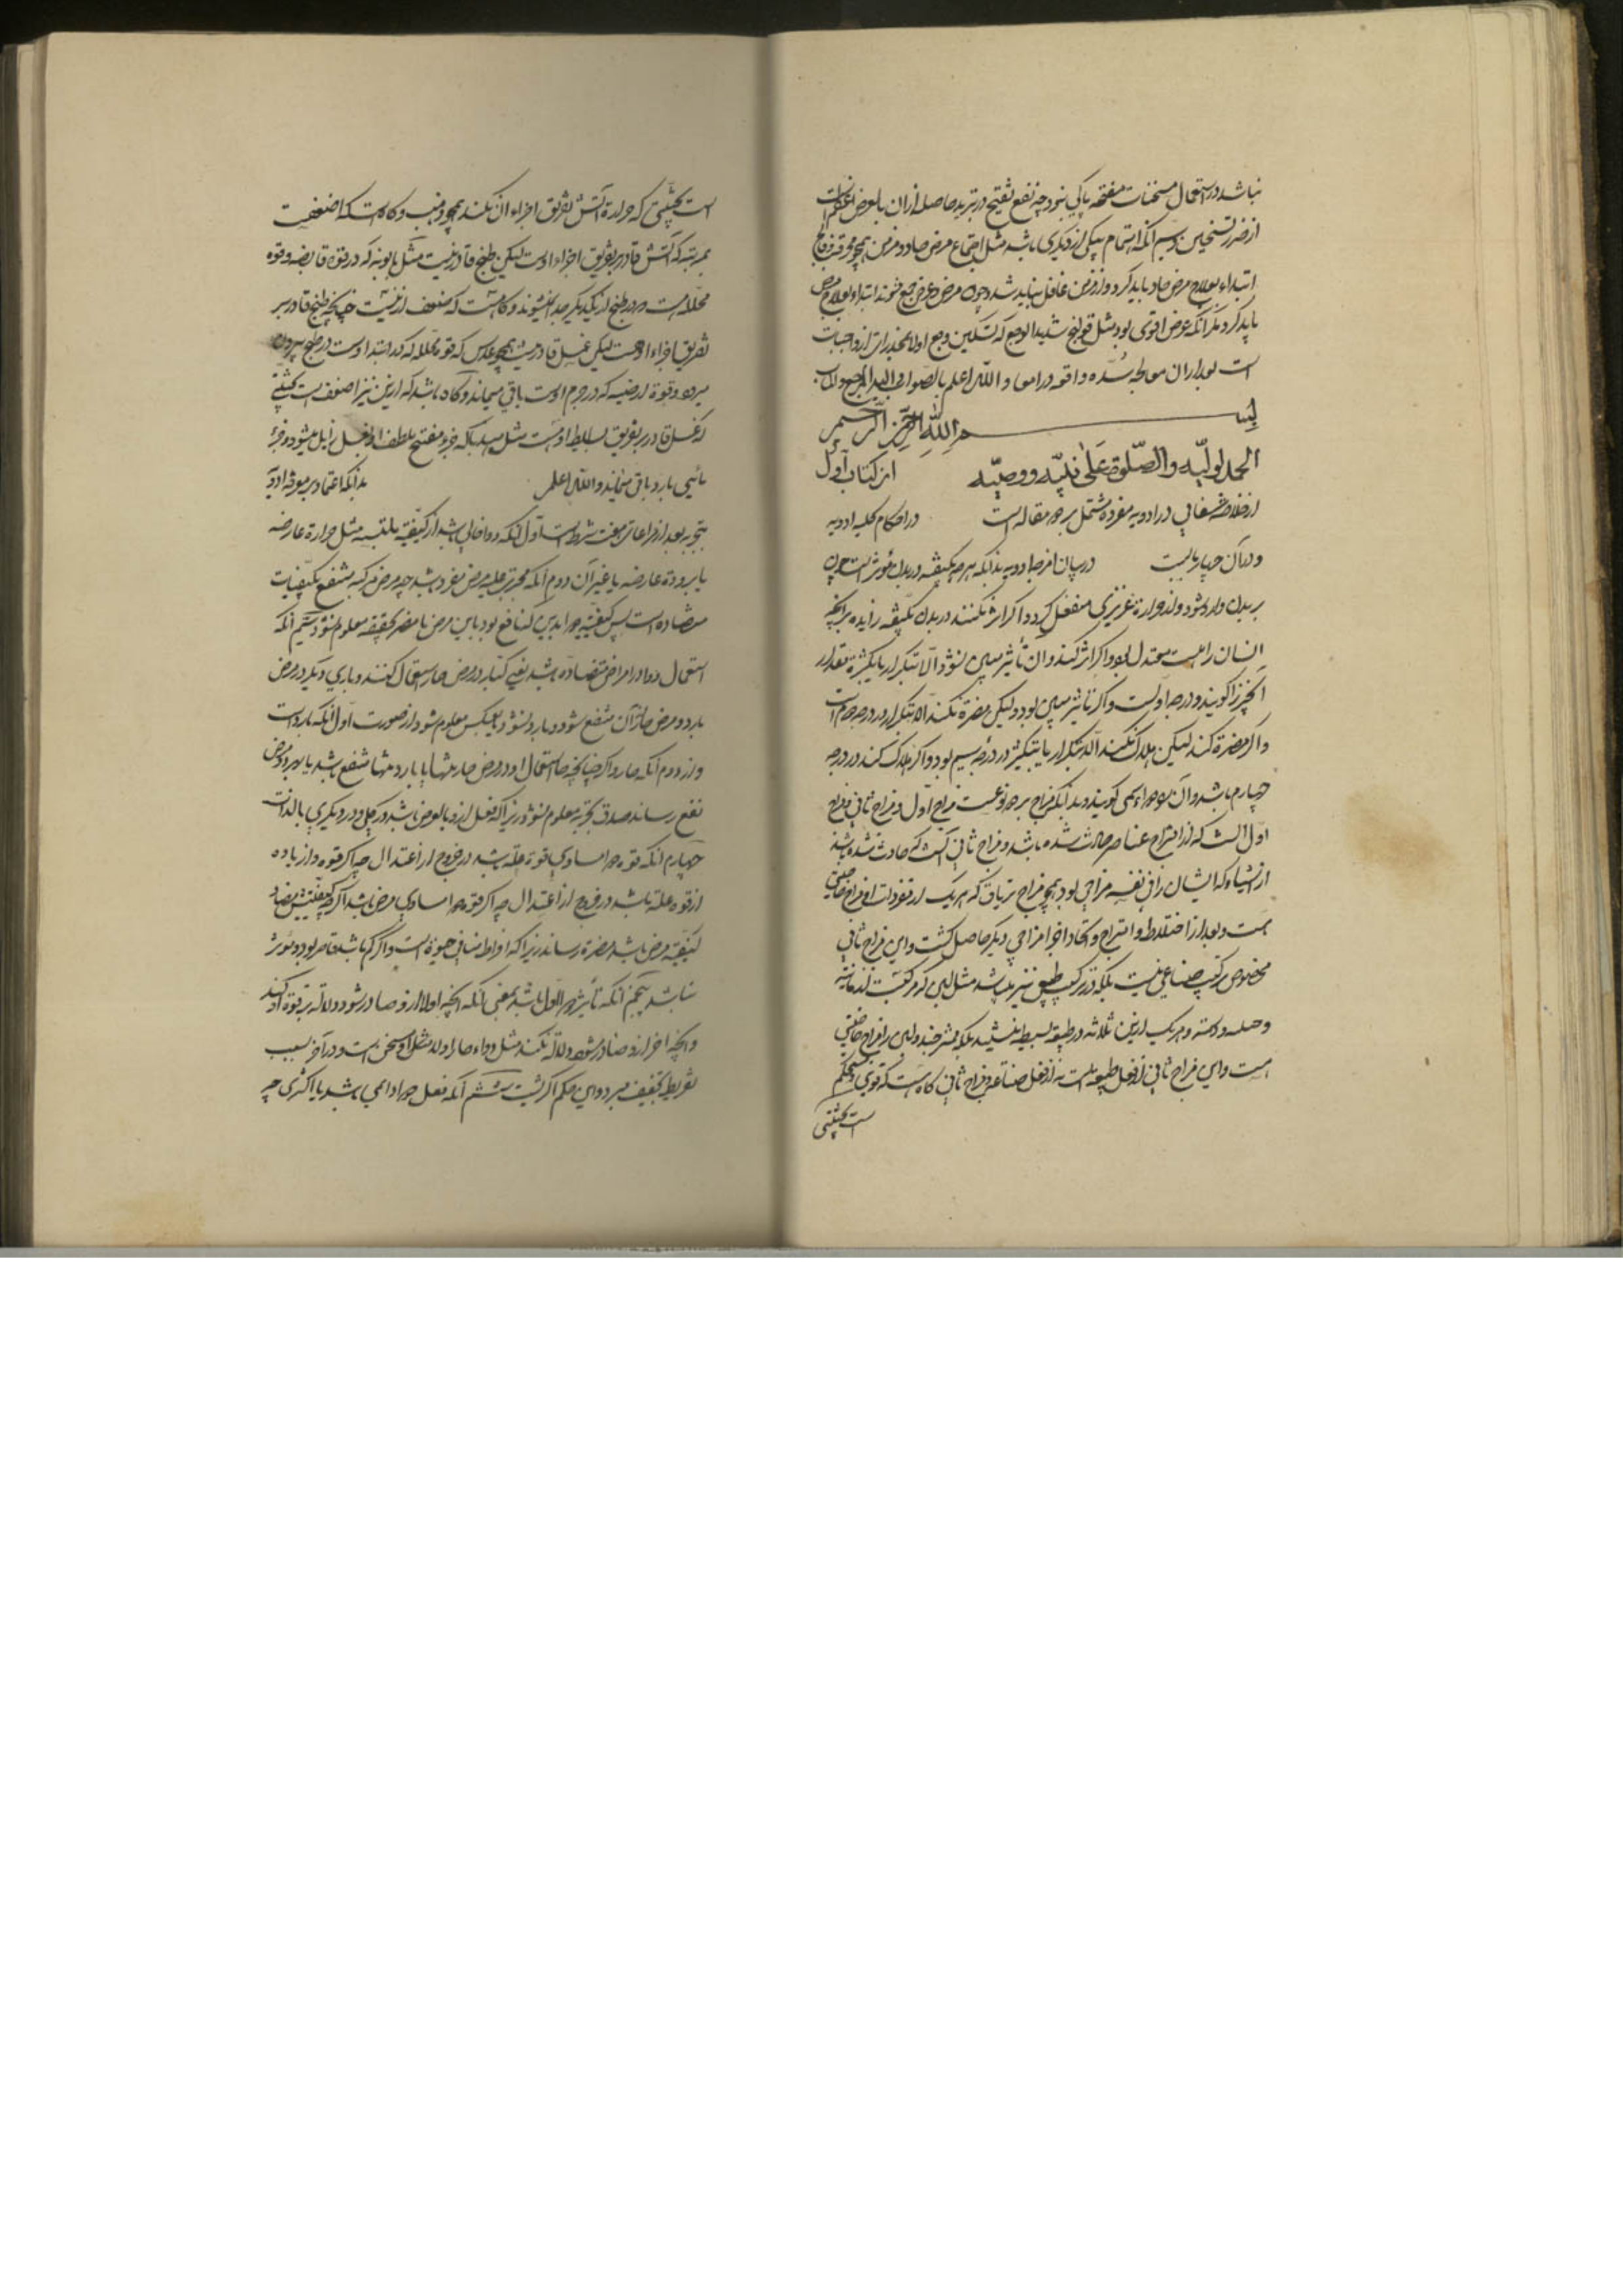 نباشد در استعمال مسخنات مفتحه باکی نبود چه نفع تفتیح در تبرید حاصله از ان بالعرض اعظم است
از ضرر تسخین سیم انکه اهتمام بیکی از دیکری باشد مثل اجتماع مرض حاد و مزمن همچو محرقه و فالج
ابتداء بعلاج مرض حاد باید کرد و از مزمن غافل نباید شد و چون مرض و عرض جمع شوند ابتداء بعلاج مرض
باید کرد مکر انکه عرض اقوی بود مثل قولنج شدید الوجع که تسکین وجع اولا بمخدرات از واجبات
است بعد از ان معالجه سده واقعه در امعا و الله اعلم بالصواب و الیه المرجع و الماب
بسم الله الرحمن الرحیم
الحمد لولیه والصلوة علی نبیه ووصیه از کتاب اول
از خلاصه در ادویه مفرده مشتمل بر دو مقاله است در احکام کلیه ادویه
و در آن چهار بابست در بیان امزجه ادویه بدانکه هرچه بکیفیته در بدن مؤثر است چون
ببدن وارد شود و از حرارة غریزی منفعل کردد اکر اثر نکند در بدن بکیفیه زایده بر انچه
انسان راهست معتدل بود و اکر اثر کند و ان تأثیر مبین نشود الا بتکرار یا بکثرة مقدار
انچیز را کویند در درجه اولست و اکر تأثیر مبین بود ولیکن مضرة نکند الا بتکرار در درجه دوم است
و اکر مضرة کند لیکن هلاک نکند الا بتکرار یا بتکثیر در درجه سیم بود و اکر هلاک کند در درجه
چهارم باشد و آن دوا را سمی کویند و بدانکه مزاج بر دو نوعست مزاج اول و مزاج ثانی مزاج
اول انست که از امتزاج عناصر حادث شده باشد و مزاج ثانی انست که حادث شده باشد
از اشیاء که ایشان را فی نفسه مزاجی بود همچو مزاج تریاق که هر یک از مفردات او مزاج خاصی
هست و بعد از اختلاط و امتزاج و اتحاد اجزا مزاجی دیکر حاصل کشت و این مزاج ثانی
مخصوص ترکیب صناعی نیست بلکه در ترکیب طبیعی نیز میباشد مثل لبن که مرکبست از مائیه
و جبنیه و دسمه و هر یک ازین ثلاثه در طبیعه بسیط نیستند بلکه ممتزجند و این را مزاج خاصی
است و این مزاج ثانی از فعل طبیعه است نه از فعل صناعه و مزاج ثانی کاه هست که قوی و مستحکم
است بحیثیتی
است بحیثیتی که حرارة آتش تفریق اجزاء ان نکند همچو ذهب و کاه هست که اضعفست
بمرتبه که آتش قادر بتفریق اجزاء اوست لیکن طبخ قادر نیست مثل بابونه که در قوة قابضه و قوة
محلله هست و در طبخ از یکدیکر جدا نمیشوند و کاه هست که ضعف ازینست چنانچه طبخ قادر بر
تفریق اجزاء او هست لیکن غسل قادر نیست همچو عدس که قوة محلله که در ابتدا اوست در طبخ بیرون
میرود و قوة ارضیه که در جرم اوست باقی میماند و کاه باشد که ازین نیز اضعف است بحیثیتی
که غسل قادر بر تفریق بسایط اوست مثل هندبا که جزو مفتح ملطف او بغسل زایل میشود و جزء
مائی بارد باقی میماند والله اعلم بدانکه اعتماد بر معرفة ادویه
بتجربه بعد از مراعات هفت شرط است اول انکه دوا خالی باشد از کیفیة مکتسبه مثل حرارة عارضه
یا برودة عارضه یا غیر آن دوم انکه مجرب علیه مرض مفرد باشد چه مرض مرکب منتفع بکیفیات
متضاده است پس کیفیة دوا بدین که نافع بود باین مرض یا مضر بحقیقه معلوم نشود سیم انکه
استعمال دوا در امراض متضاده باشد یعنی یکبار در مرض حار استعمال کنند و باری دیکر در مرض
بارد و مرض حار از آن منتفع شود و بارد نشود یا بعکس معلوم شود از صورت اول انکه بارد است
و از دوم انکه حار و اکر چنانچه استعمال او در مرض حار تنها یا بارد تنها منتفع باشد یا بهر دو مرض
نفع رساند صدق تجربه معلوم نشود زیراکه فعل او بالعرض باشد در یکی و در دیکری بالذات
چهارم انکه قوة دوا مساوی قوة علة باشد در خروج از اعتدال چه اکر قوة دوا زیاده
از قوة علة باشد در خروج از اعتدال چه اکر قوة دوا مساوی مرض باشد اکرچه بکیفیتش مضاد
کیفیة مرض باشد مضرة رساند زیراکه افراط منافی حیوة است و اکر کم باشد قاصر بود و مؤثر
نباشد پنجم انکه تأثیر دوا اول باشد بمعنی انکه انچه اولا از و صادر شود دلالة بر قوة او کند
و انچه اخر از و صادر شود دلالة نکند مثل دواء حار اولا مثلا او مسخن است و در آخر بسبب
تفریط تخفیف میبرد و این حکم اکثریست ششم انکه فعل دوا دایمی باشد یا اکثری چه